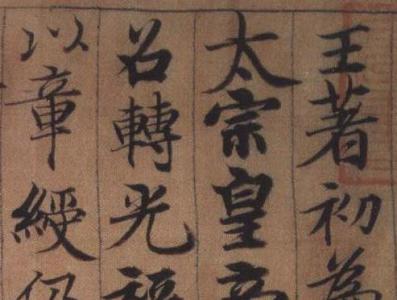 王著初為
太宗皇帝
召轉光祿
以章綬仍